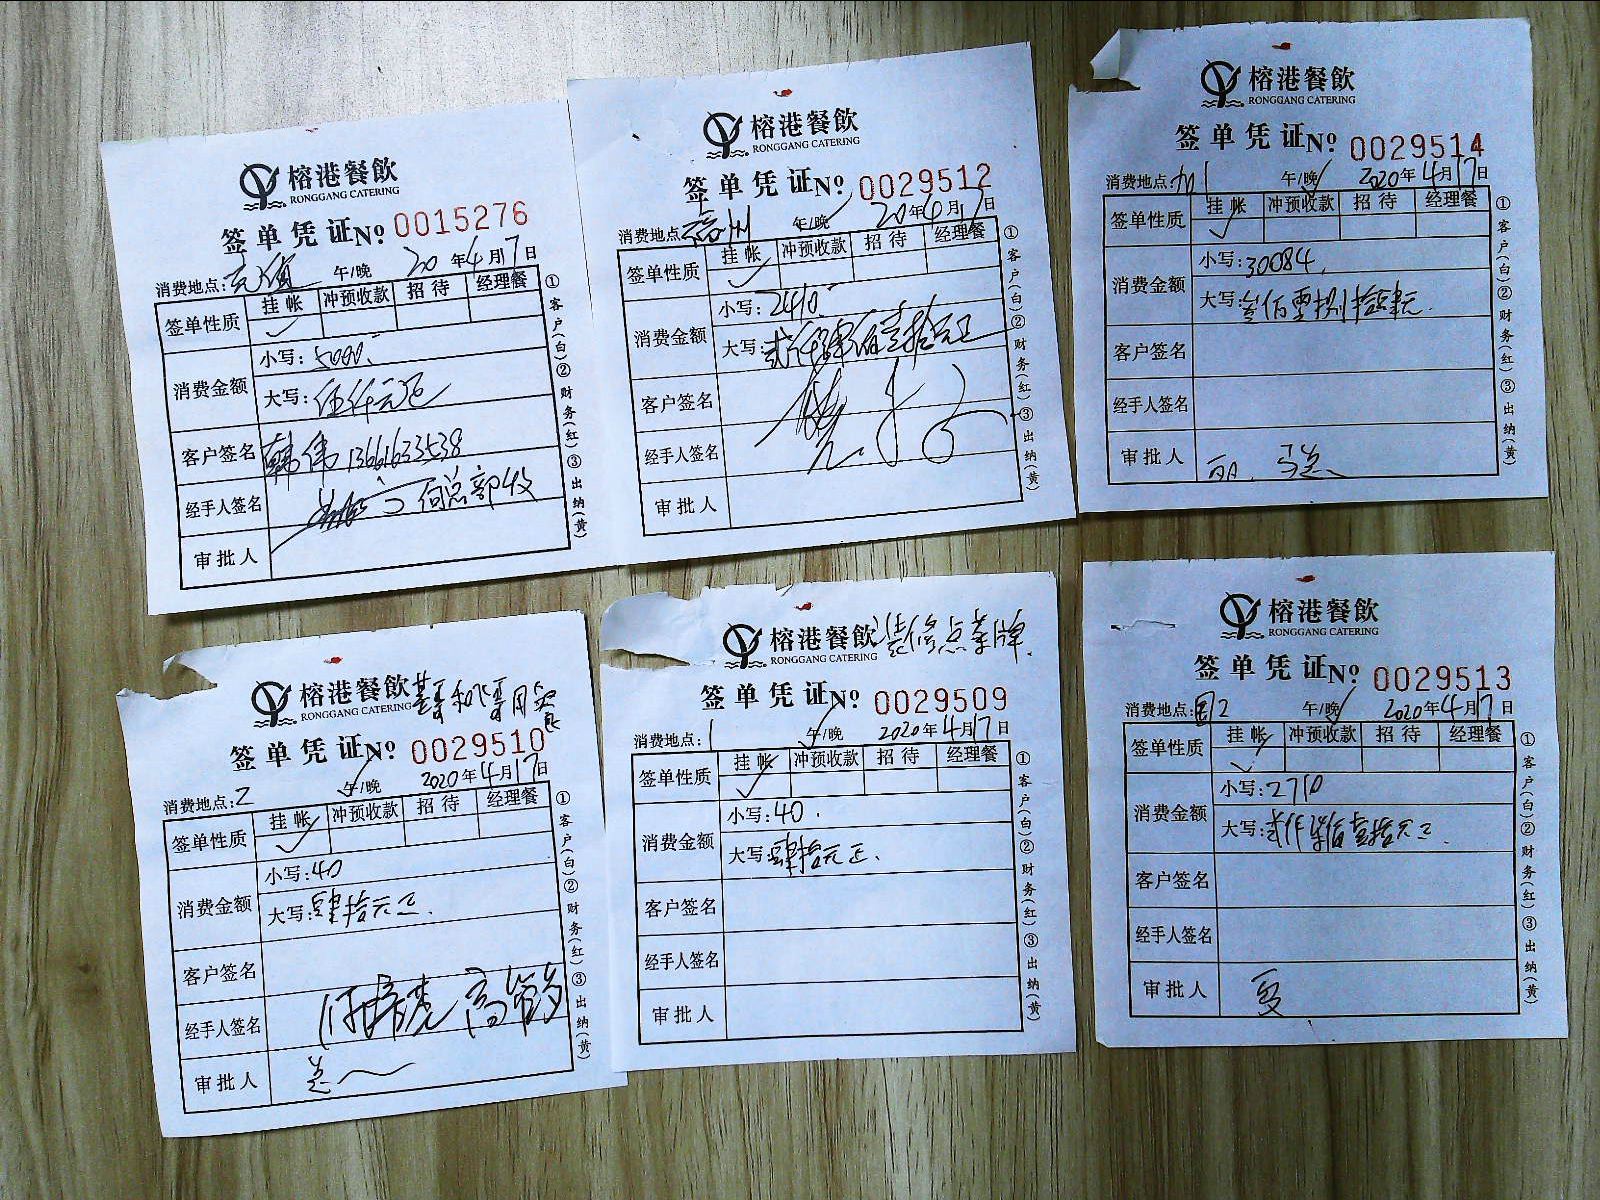 榕港餐飲
RONGGANG CATERING
签单凭证№ 0015276
消费地点:充值 午/晚 20年4月7日
签单性质 挂帐 冲预收款 招待 经理餐
消费金额 小写:5000.
大写:伍仟元正
客户签名 韩伟 13661633538
经手人签名 何总部收
审批人
①客户(白)②财务(红)③出纳(黄)
榕港餐飲
RONGGANG CATERING
签单凭证№ 0029512
消费地点:福州 午/晚 20年4月17日
签单性质 挂帐 冲预收款 招待 经理餐
消费金额 小写:2410
大写:贰仟肆佰壹拾元正
客户签名
经手人签名
审批人
①客户(白)②财务(红)③出纳(黄)
榕港餐飲
RONGGANG CATERING
签单凭证№ 0029514
消费地点:加1 午/晚 2020年4月17日
签单性质 挂帐 冲预收款 招待 经理餐
消费金额 小写:30084.
大写:
客户签名
经手人签名
审批人
①客户(白)②财务(红)③出纳(黄)
榕港餐飲
RONGGANG CATERING
签单凭证№ 0029510
消费地点:2 午/晚 2020年4月17日
签单性质 挂帐 冲预收款 招待 经理餐
消费金额 小写:40
大写:肆拾元正.
客户签名
经手人签名
审批人
①客户(白)②财务(红)③出纳(黄)
榕港餐飲 装修点菜牌.
RONGGANG CATERING
签单凭证№ 0029509
消费地点:1 午/晚 2020年4月17日
签单性质 挂帐 冲预收款 招待 经理餐
消费金额 小写:40.
大写:肆拾元正.
客户签名
经手人签名
审批人
①客户(白)②财务(红)③出纳(黄)
榕港餐飲
RONGGANG CATERING
签单凭证№ 0029513
消费地点:国2 午/晚 2020年4月17日
签单性质 挂帐 冲预收款 招待 经理餐
消费金额 小写:2710
大写:贰仟柒佰壹拾元正.
客户签名
经手人签名
审批人
①客户(白)②财务(红)③出纳(黄)